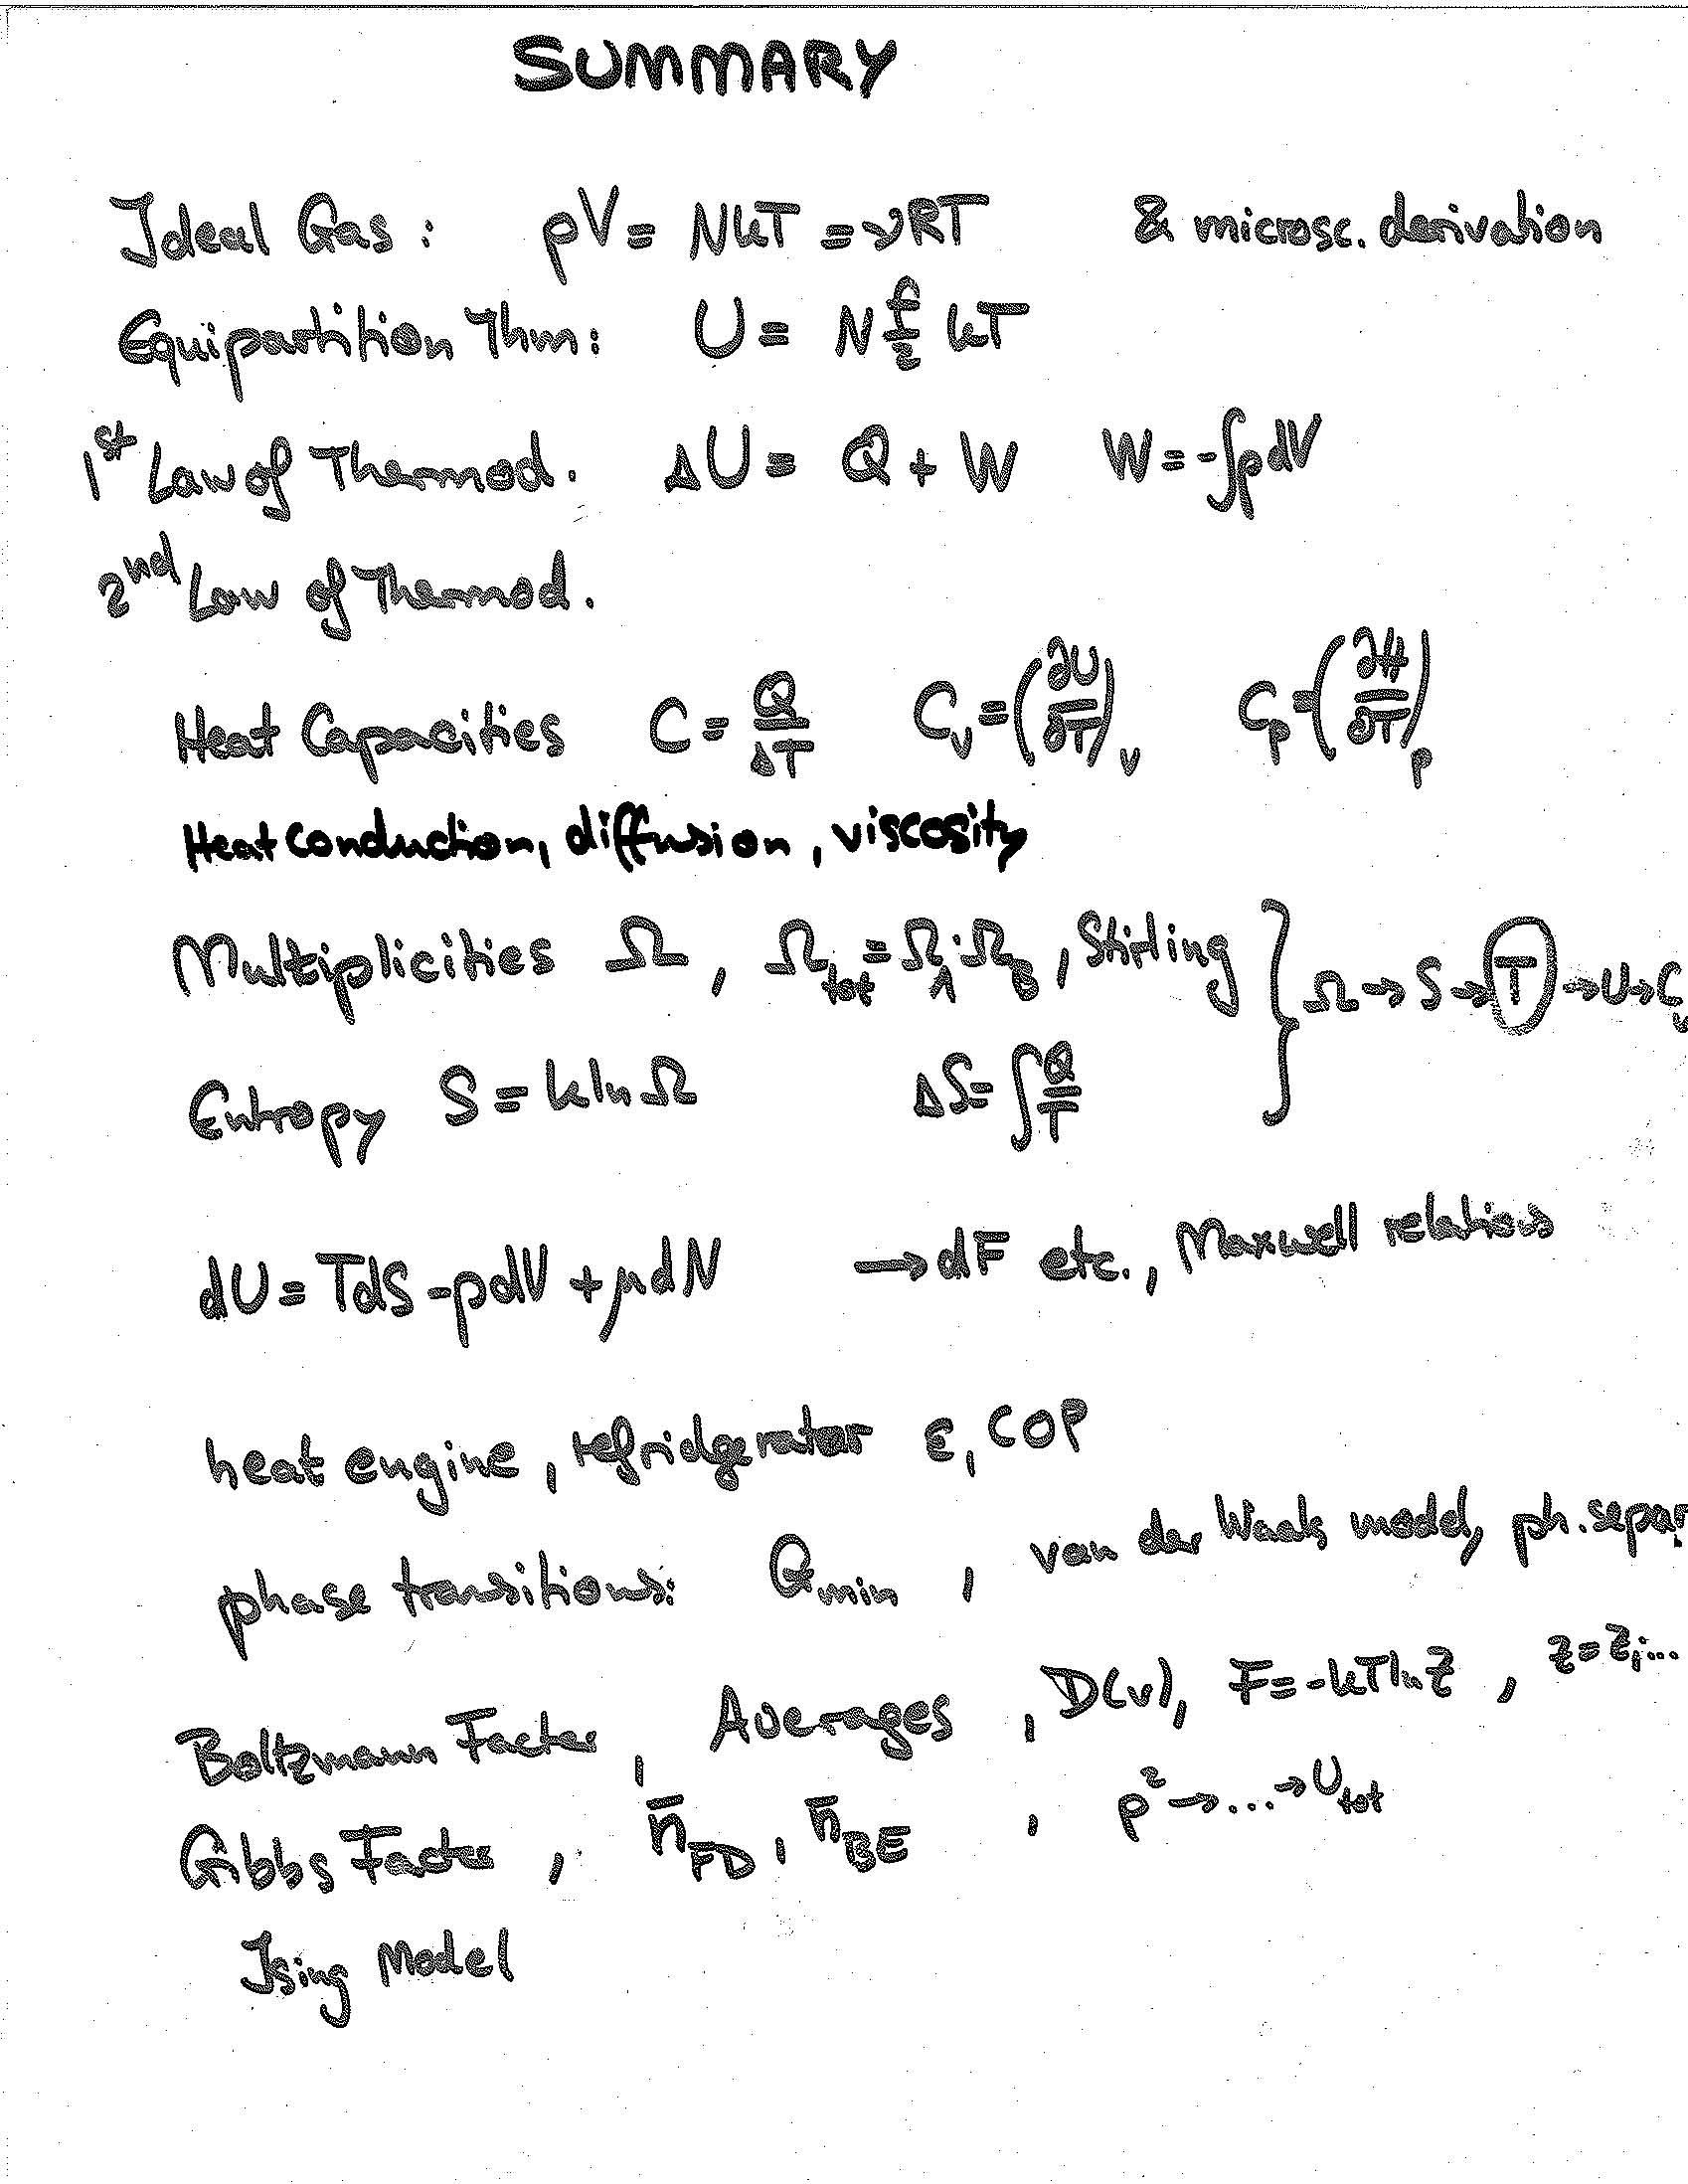 SUMMARY
Ideal Gas: pV = NkT = νRT & microsc. derivation
Equipartition Thm: U = N f/2 kT
1st Law of Thermod. ΔU = Q + W W = -∫pdV
2nd Law of Thermod.
Heat Capacities C = Q/ΔT C_V = (∂U/∂T)_V C_p = (∂H/∂T)_p
Heat conduction, diffusion, viscosity
Multiplicities Ω, Ω_tot = Ω_A·Ω_B, Stirling } Ω → S → T → U → C_V
Entropy S = k ln Ω ΔS = ∫ Q/T
dU = TdS - pdV + μdN → dF etc., Maxwell relations
heat engine, refridgerator ε, COP
phase transitions: G_min, van der Waals model, ph. separ.
Boltzmann Factor, Averages, D(v), F = -kT ln Z, Z = Z_1...
Gibbs Factor, n̄_FD, n̄_BE, p² → ... → U_tot
Ising Model